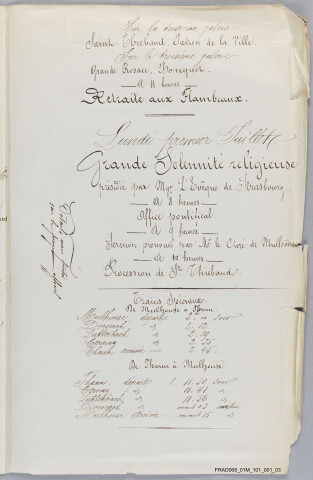 Sur la deuxième galerie
Saint Thiebaud, Patron de la Ville.
Sur la troisième galerie
Grande Rosace, Bouquet.
— A 11 heures —
Retraite aux Flambeaux.
Lundi premier Juillet
Grande Solennité religieuse
présidée par Mgr L'Evêque de Strasbourg.
— A 8 heures —
Office pontifical
— A 9 heures —
Sermon prononcé par Mr le Curé de Mulhouse
— A 10 heures —
Procession de St Thiebaud.
Trains Spéciaux
De Mulhouse à Thann.
Mulhouse départ soir
Dornach " 2. 12
Lutterbach " 2.
Cernay " 2. 35
Thann arrivée — 2. 45
De Thann à Mulhouse
Thann départ 11. 30 Soir
Cernay " 11. 41 "
Lutterbach " 11. 56 "
Dornach " minuit 03 matin
Mulhouse arrivée minuit 15 "
FRAD068_01M_101_001_03